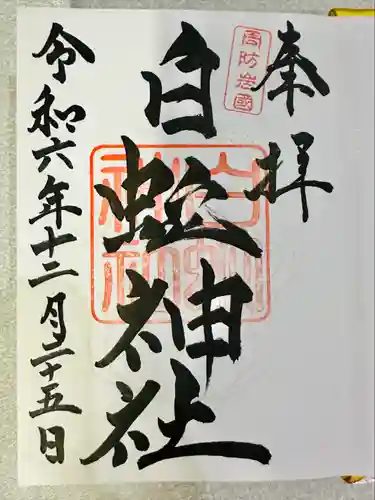 奉拝
周防岩國
白蛇神社
令和六年十二月二十五日